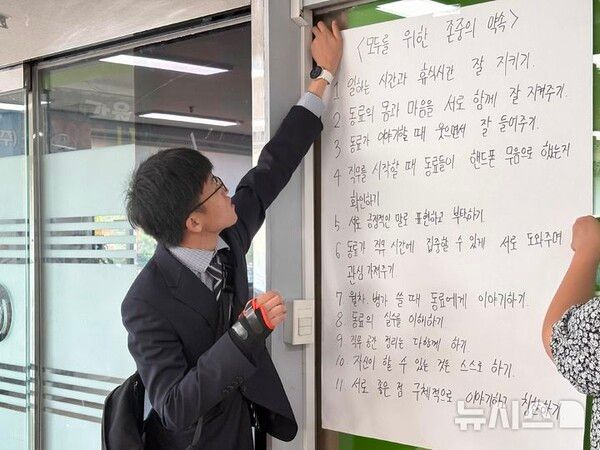 <모두를 위한 존중의 약속>
1 일하는 시간과 휴식시간 잘 지키기.
2 동료의 몸과 마음을 서로 함께 잘 지켜주기.
3 동료가 이야기할 때 웃으면서 잘 들어주기.
4 직무를 시작할 때 동료들이 핸드폰 무음으로 했는지
확인하기
5 서로 긍정적인 말로 표현하고 부탁하기
6 동료가 직무 시간에 집중할 수 있게 서로 도와주며
관심 가져주기
7 월차, 병가 쓸 때 동료에게 이야기하기.
8 동료의 실수를 이해하기
9 직무 공간 정리는 다함께 하기
10 자신이 할 수 있는 것은 스스로 하기.
11 서로 좋은 점 구체적으로 이야기하고 칭찬하기
뉴시스